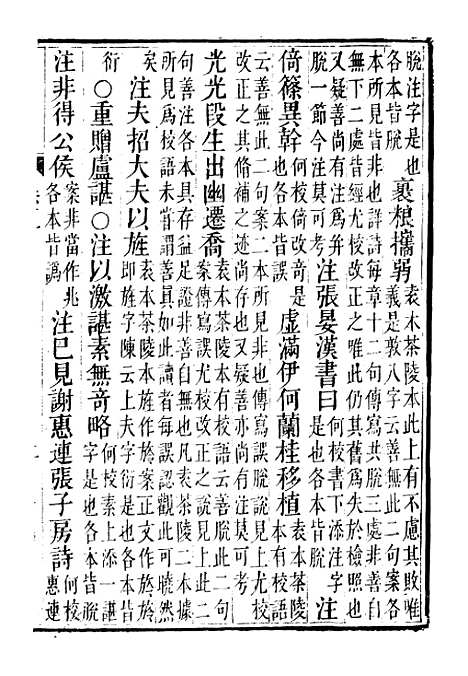 脫注字是也
各本皆脫
裹粮攜弱
袁本茶陵本此上有不慮其敗唯
義是敦八字云善無此二句案各
本所見皆非也詳詩每章十二句傳寫共脫三處非善自
無下二處皆經尤校改正之唯此仍失於檢照也
又疑善尚有注爲并
脫一節今注莫可考
注張晏漢書曰
何校書下添注字
是也各本皆脫
注
倚篠異幹
何校倚改奇是
也各本皆誤
虛滿伊何蘭桂移植
袁本茶陵
本有校語
云善無此二句案二本所見非也傳寫誤脫說見上尤校
改正之其脩補之迹尚存也又疑善亦尚有注今莫可考
光光段生出幽遷喬
袁本茶陵本有校語云善無此二句
案傳寫誤尤校改正說見上此二
句善注各本具存益足證非善自無凡袁茶陵二本據
所見爲校語未嘗謂善眞如此讀者每誤認觀此可曉然
矣
注夫招大夫以旌
袁本茶陵本旌作於案正文作旍於
即旌字陳云上夫字衍是也各本皆
衍
○重贈盧諶○注以激諶素無奇略
何校素上添一諶
字是也各本皆脫
注非得公侯
案非當作兆
各本皆譌
注已見謝惠連張子房詩
何校
惠連